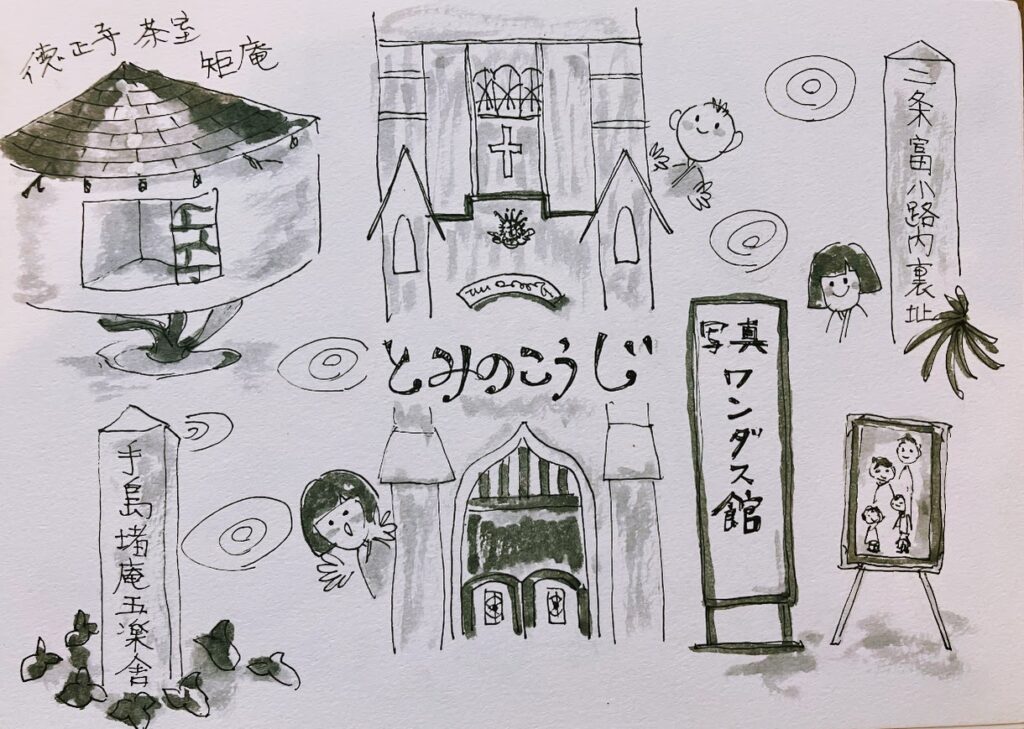 徳正寺 茶室
矩庵
三条富小路内裏址
とみのこうじ
写真
ワンダス館
手島堵庵五楽舎